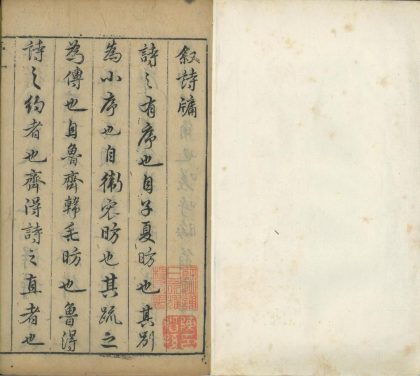 叙詩牗
詩之有序也自子夏昉也其別
為小序也自衛宏昉也其疏之
為傳也自魯齊韓毛昉也魯得
詩之約者也齊得詩之真者也